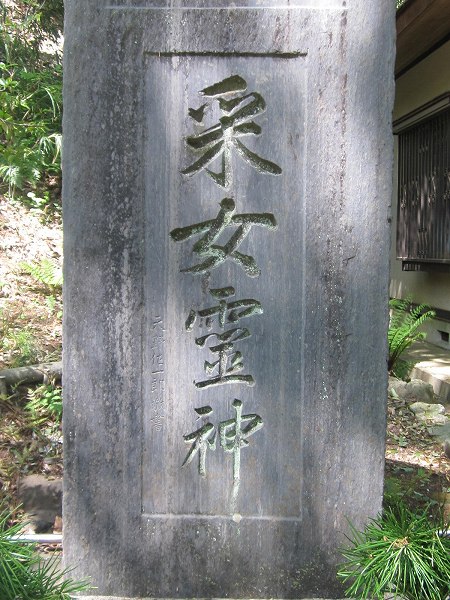 采女霊神